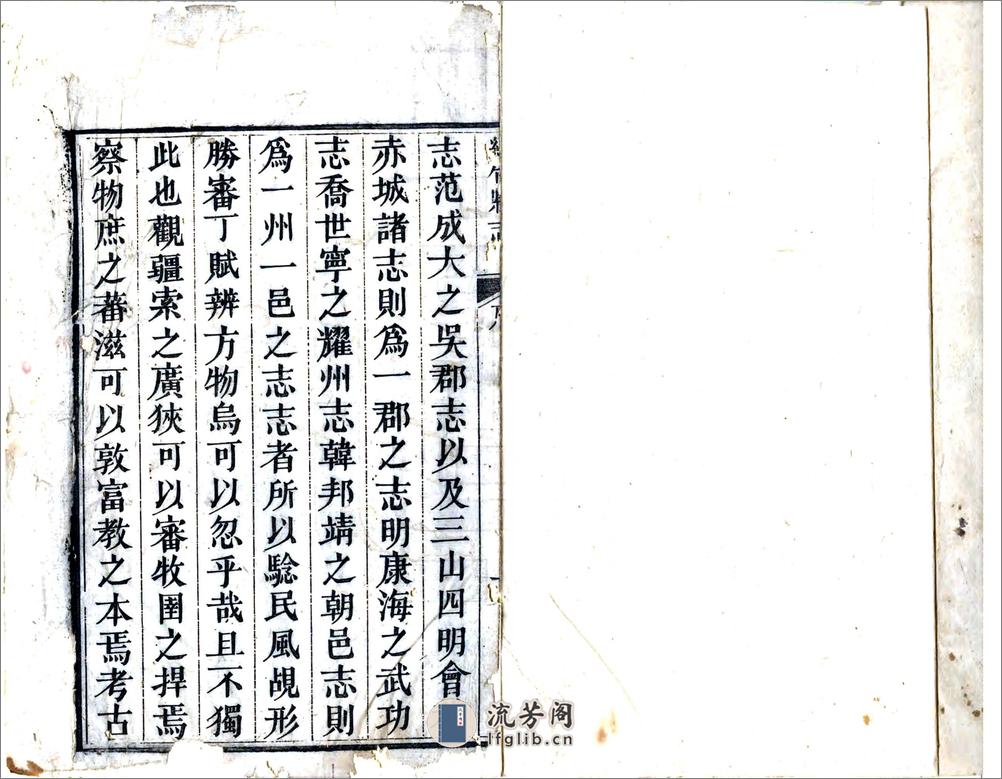 志范成大之吳郡志以及三山四明會
赤城諸志則爲一郡之志明康海之武功
志喬世寧之耀州志韓邦靖之朝邑志則
爲一州一邑之志志者所以騐民風覘形
勝審丁賦辨方物烏可以忽乎哉且不獨
此也觀疆索之廣狹可以審牧圉之捍焉
察物庶之蕃滋可以敦富教之本焉考古
流芳阁
lfglib.cn